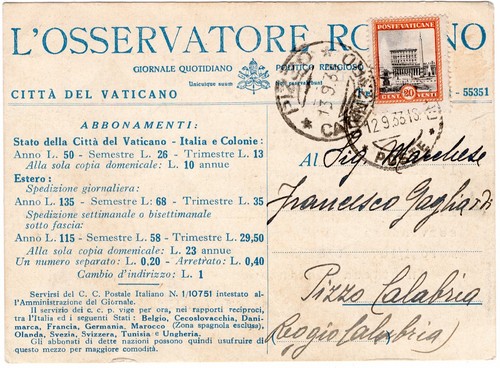 L'OSSERVATORE RO NO
GIORNALE QUOTIDIANO POLITICO RELIGIOSO
Unicuique suum
CITTÀ DEL VATICANO 55351
POSTE VATICANE
CENT. 20 VENTI
13.9.33
12.9.33
ABBONAMENTI:
Stato della Città del Vaticano - Italia e Colonie:
Anno L. 50 - Semestre L. 26 - Trimestre L. 13
Alla sola copia domenicale: L. 10 annue
Estero:
Spedizione giornaliera:
Anno L. 135 - Semestre L: 68 - Trimestre L. 35
Spedizione settimanale o bisettimanale
sotto fascia:
Anno L. 115 - Semestre L. 58 - Trimestre L. 29,50
Alla sola copia domenicale: L. 23 annue
Un numero separato: L. 0,20 - Arretrato: L. 0,40
Cambio d'indirizzo: L. 1
Servirsi del C. C. Postale Italiano N. 1/10751 intestato al-
l'Amministrazione del Giornale.
Il servizio di c. c. p. vige per ora, nei rapporti reciproci,
tra l'Italia ed i seguenti Stati: Belgio, Cecoslovacchia, Dani-
marca, Francia, Germania, Marocco (Zona spagnola esclusa),
Olanda, Svezia, Svizzera, Tunisia e Ungheria.
Gli abbonati di dette nazioni possono quindi usufruire di
questo mezzo per maggiore comodità.
Al Sig. Marchese
Francesco Gagliardi
Pizzo Calabria
(Reggio Calabria)